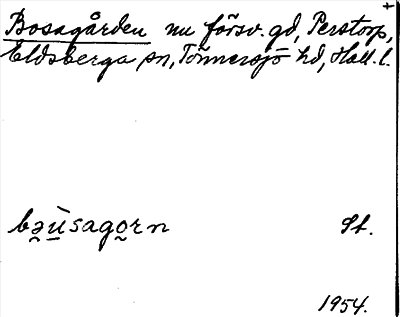 +
Bosagården nu försv. gd, Perstorp,
Eldsberga sn, Tönnersjö hd, Hall. l.
bə̯ùsago̯rn St.
1954.